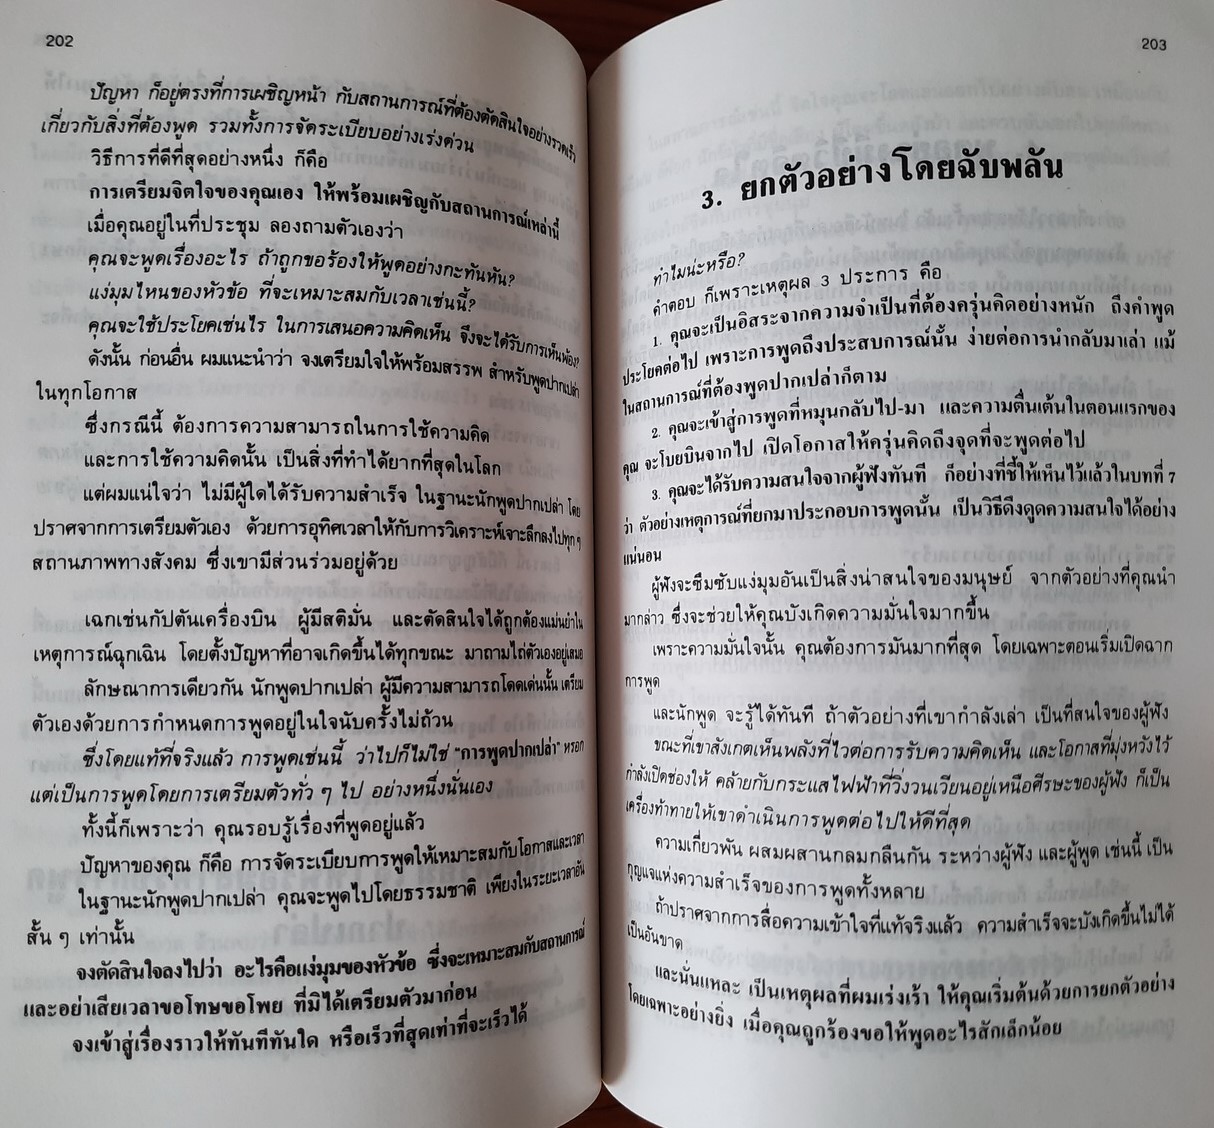 202
ปัญหา ก็อยู่ตรงที่การเผชิญหน้า กับสถานการณ์ที่ต้องตัดสินใจอย่างรวดเร็ว
เกี่ยวกับสิ่งที่ต้องพูด รวมทั้งการจัดระเบียบอย่างเร่งด่วน
วิธีการที่ดีที่สุดอย่างหนึ่ง ก็คือ
การเตรียมจิตใจของคุณเอง ให้พร้อมเผชิญกับสถานการณ์เหล่านี้
เมื่อคุณอยู่ในที่ประชุม ลองถามตัวเองว่า
คุณจะพูดเรื่องอะไร ถ้าถูกขอร้องให้พูดอย่างกะทันหัน?
แง่มุมไหนของหัวข้อ ที่จะเหมาะสมกับเวลาเช่นนี้?
คุณจะใช้ประโยคเช่นไร ในการเสนอความคิดเห็น จึงจะได้รับการเห็นพ้อง?
ดังนั้น ก่อนอื่น ผมแนะนำว่า จงเตรียมใจให้พร้อมสรรพ สำหรับพูดปากเปล่า
ในทุกโอกาส
ซึ่งกรณีนี้ ต้องการความสามารถในการใช้ความคิด
และการใช้ความคิดนั้น เป็นสิ่งที่ทำได้ยากที่สุดในโลก
แต่ผมแน่ใจว่า ไม่มีผู้ใดได้รับความสำเร็จ ในฐานะนักพูดปากเปล่า โดย
ปราศจากการเตรียมตัวเอง ด้วยการอุทิศเวลาให้กับการวิเคราะห์เจาะลึกลงไปทุก ๆ
สถานภาพทางสังคม ซึ่งเขามีส่วนร่วมอยู่ด้วย
เฉกเช่นกัปตันเครื่องบิน ผู้มีสติมั่น และตัดสินใจได้ถูกต้องแม่นยำใน
เหตุการณ์ฉุกเฉิน โดยตั้งปัญหาที่อาจเกิดขึ้นได้ทุกขณะ มาถามไถ่ตัวเองอยู่เสมอ
ลักษณาการเดียวกัน นักพูดปากเปล่า ผู้มีความสามารถโดดเด่นนั้น เตรียม
ตัวเองด้วยการกำหนดการพูดอยู่ในใจนับครั้งไม่ถ้วน
ซึ่งโดยแท้ที่จริงแล้ว การพูดเช่นนี้ ว่าไปก็ไม่ใช่ "การพูดปากเปล่า" หรอก
แต่เป็นการพูดโดยการเตรียมตัวทั่ว ๆ ไป อย่างหนึ่งนั่นเอง
ทั้งนี้ก็เพราะว่า คุณรอบรู้เรื่องที่พูดอยู่แล้ว
ปัญหาของคุณ ก็คือ การจัดระเบียบการพูดให้เหมาะสมกับโอกาสและเวลา
ในฐานะนักพูดปากเปล่า คุณจะพูดไปโดยธรรมชาติ เพียงในระยะเวลาอัน
สั้น ๆ เท่านั้น
จงตัดสินใจลงไปว่า อะไรคือแง่มุมของหัวข้อ ซึ่งจะเหมาะสมกับสถานการณ์
และอย่าเสียเวลาขอโทษขอโพย ที่มิได้เตรียมตัวมาก่อน
จงเข้าสู่เรื่องราวให้ทันทีทันใด หรือเร็วที่สุดเท่าที่จะเร็วได้
203
3. ยกตัวอย่างโดยฉับพลัน
ทำไมน่ะหรือ?
คำตอบ ก็เพราะเหตุผล 3 ประการ คือ
1. คุณจะเป็นอิสระจากความจำเป็นที่ต้องครุ่นคิดอย่างหนัก ถึงคำพูด
ประโยคต่อไป เพราะการพูดถึงประสบการณ์นั้น ง่ายต่อการนำกลับมาเล่า แม้
ในสถานการณ์ที่ต้องพูดปากเปล่าก็ตาม
2. คุณจะเข้าสู่การพูดที่หมุนกลับไป-มา และความตื่นเต้นในตอนแรกของ
คุณ จะโบยบินจากไป เปิดโอกาสให้ครุ่นคิดถึงจุดที่จะพูดต่อไป
3. คุณจะได้รับความสนใจจากผู้ฟังทันที ก็อย่างที่ชี้ให้เห็นไว้แล้วในบทที่ 7
ว่า ตัวอย่างเหตุการณ์ที่ยกมาประกอบการพูดนั้น เป็นวิธีดึงดูดความสนใจได้อย่าง
แน่นอน
ผู้ฟังจะซึมซับแง่มุมอันเป็นสิ่งน่าสนใจของมนุษย์ จากตัวอย่างที่คุณนำ
มากล่าว ซึ่งจะช่วยให้คุณบังเกิดความมั่นใจมากขึ้น
เพราะความมั่นใจนั้น คุณต้องการมันมากที่สุด โดยเฉพาะตอนเริ่มเปิดฉาก
การพูด
และนักพูด จะรู้ได้ทันที ถ้าตัวอย่างที่เขากำลังเล่า เป็นที่สนใจของผู้ฟัง
ขณะที่เขาสังเกตเห็นพลังที่ไวต่อการรับความคิดเห็น และโอกาสที่มุ่งหวังไว้
กำลังเปิดช่องให้ คล้ายกับกระแสไฟฟ้าที่วิ่งวนเวียนอยู่เหนือศีรษะของผู้ฟัง ก็เป็น
เครื่องท้าทายให้เขาดำเนินการพูดต่อไปให้ดีที่สุด
ความเกี่ยวพัน ผสมผสานกลมกลืนกัน ระหว่างผู้ฟัง และผู้พูด เช่นนี้ เป็น
กุญแจแห่งความสำเร็จของการพูดทั้งหลาย
ถ้าปราศจากการสื่อความเข้าใจที่แท้จริงแล้ว ความสำเร็จจะบังเกิดขึ้นไม่ได้
เป็นอันขาด
และนั่นแหละ เป็นเหตุผลที่ผมเร่งเร้า ให้คุณเริ่มต้นด้วยการยกตัวอย่าง
โดยเฉพาะอย่างยิ่ง เมื่อคุณถูกร้องขอให้พูดอะไรสักเล็กน้อย